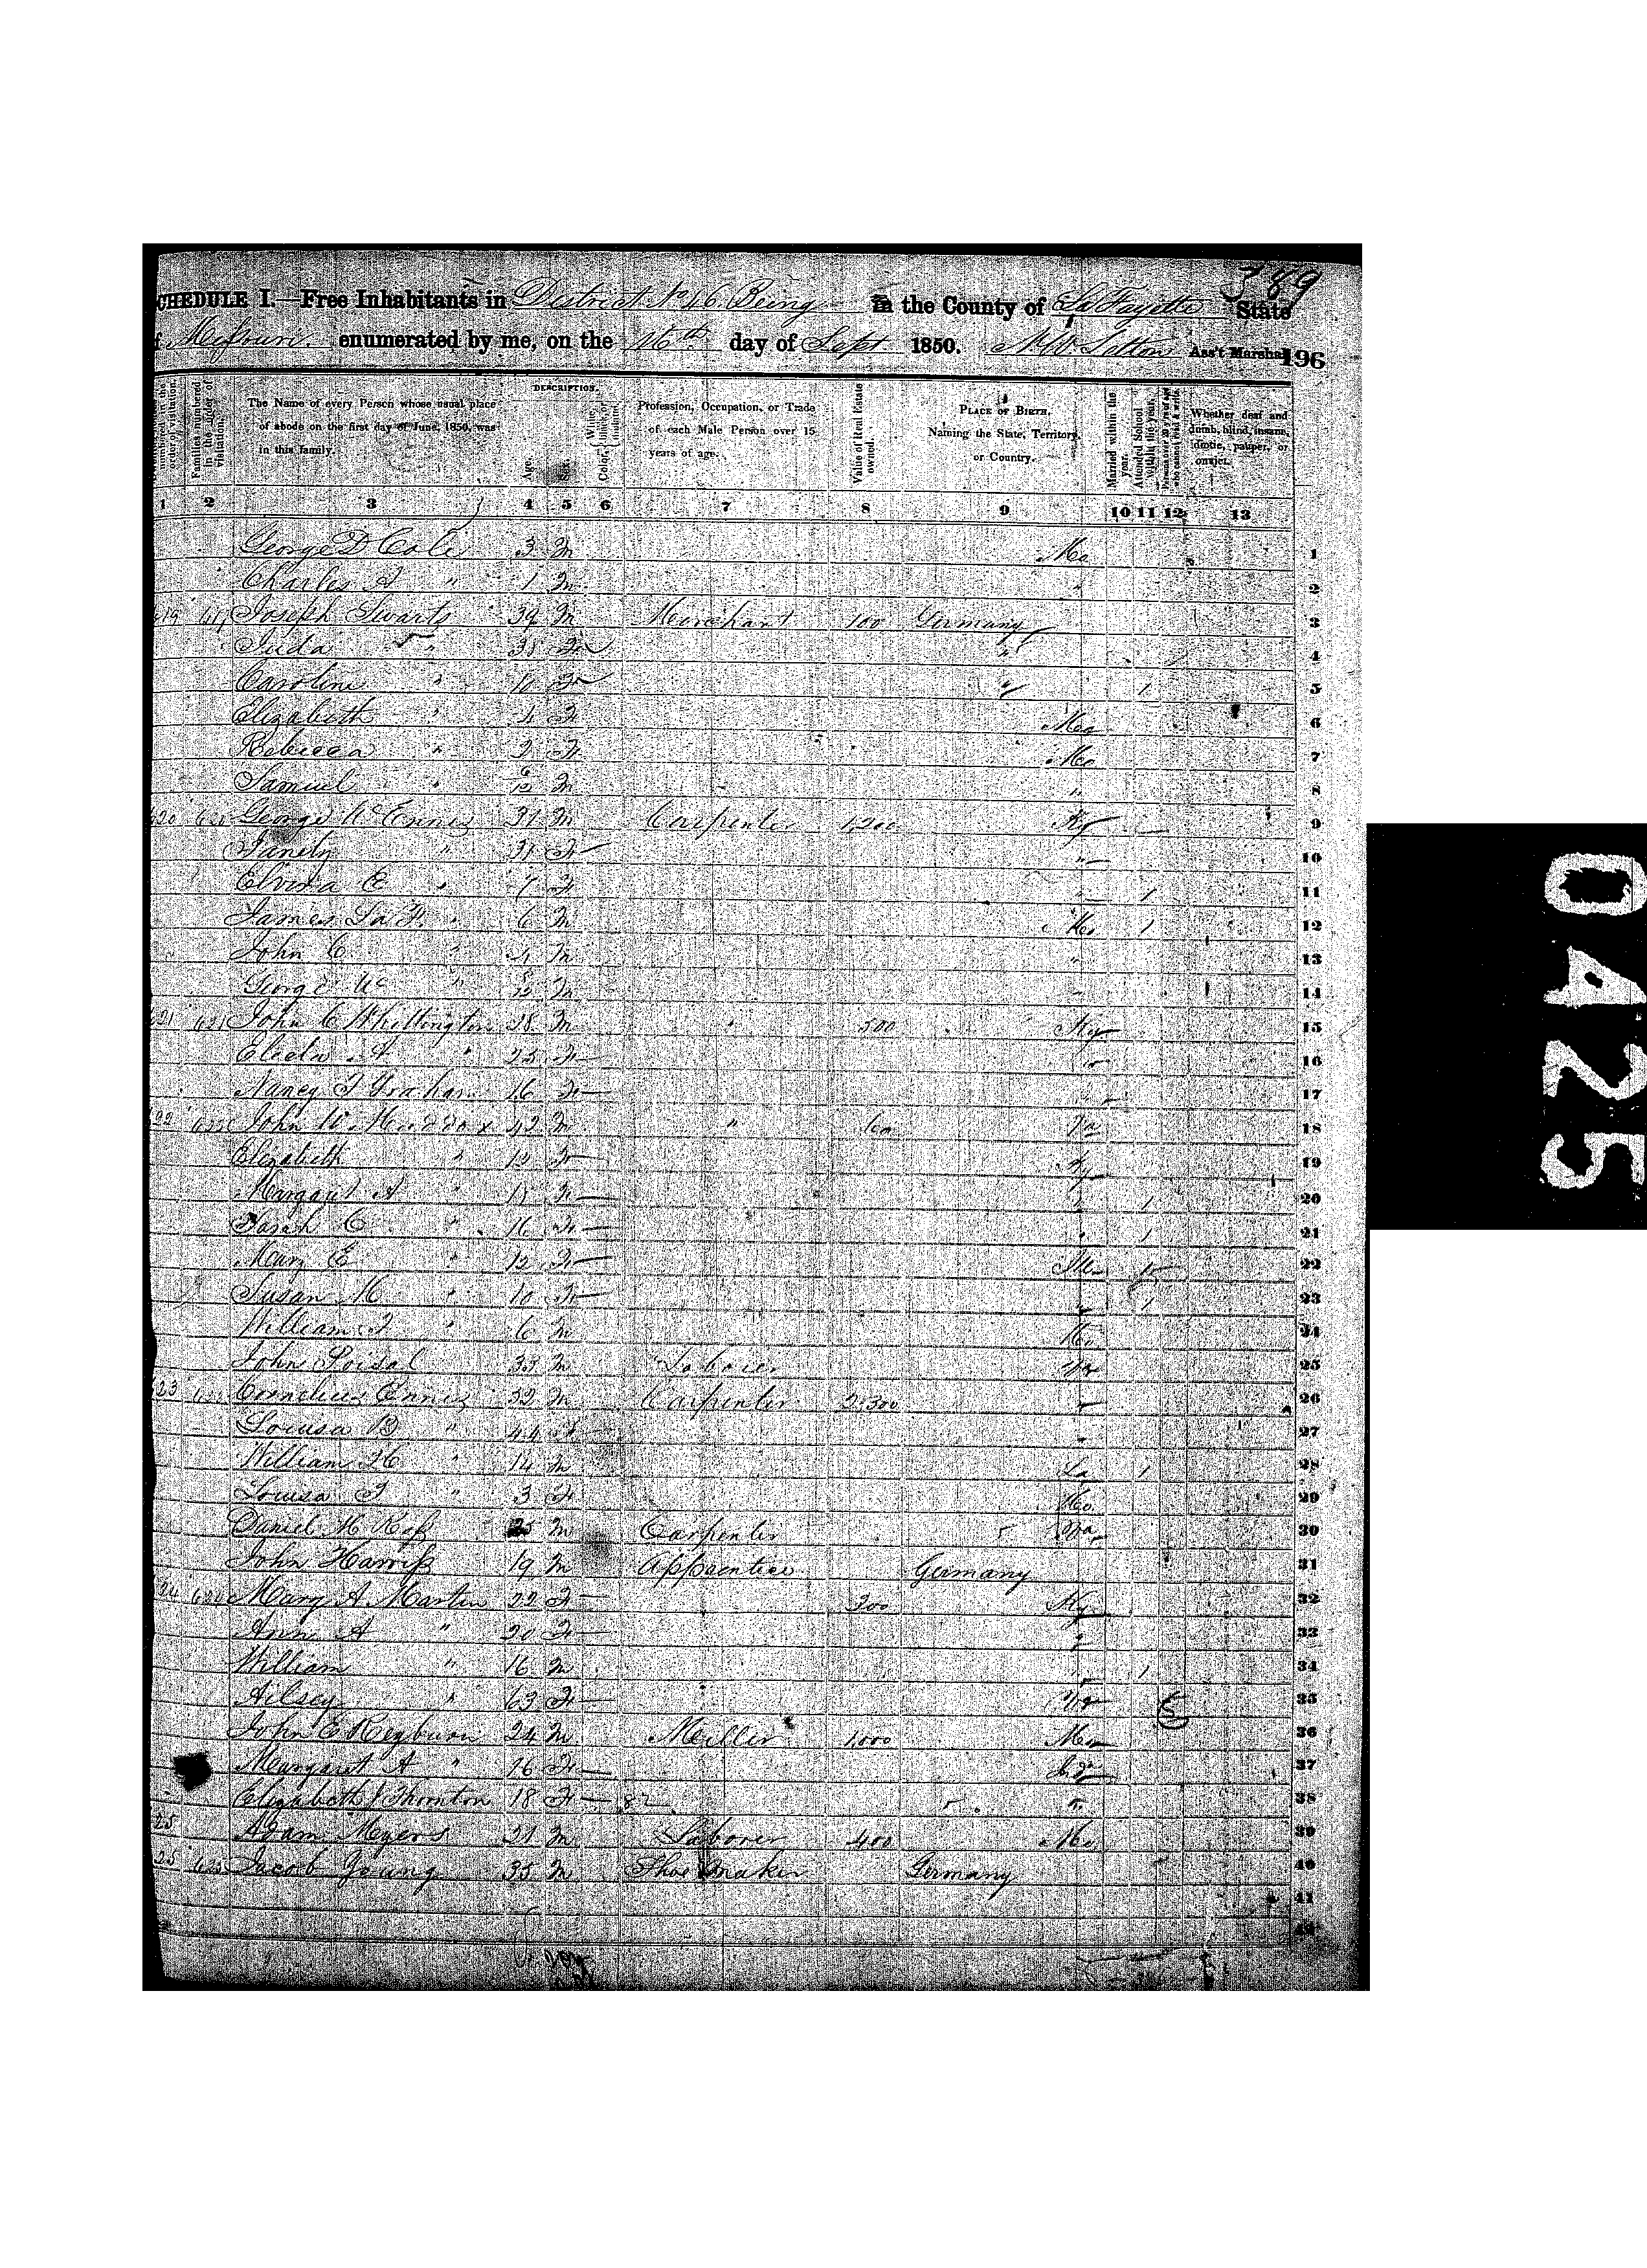 389
SCHEDULE I.—Free Inhabitants in District No 46 Being in the County of La Fayette State
of Missouri enumerated by me, on the 16th day of Sept 1850. Ass't Marshal 196
DESCRIPTION.
Families numbered in the order of visitation.
The Name of every Person whose usual place of abode on the first day of June, 1850, was in this family.
Age.
Sex.
Color, White, black, or mulatto.
Profession, Occupation, or Trade of each Male Person over 15 years of age.
Value of Real Estate owned.
PLACE OF BIRTH. Naming the State, Territory, or Country.
Married within the year.
Attended School within the year.
Persons over 20 y'rs of age who cannot read & write.
Whether deaf and dumb, blind, insane, idiotic, pauper, or convict.
1 2 3 4 5 6 7 8 9 10 11 12 13
George D Cole 3 M Mo 1
Charles A " 1 M " 2
619 619 Joseph Swarts 39 M Merchant 100 Germany 3
Juda " 35 F " 4
Caroline " 10 F " 1 5
Elizabeth " 4 F Mo 6
Rebecca " 2 F Mo 7
Samuel " M " 8
620 620 George W Ennis 31 M Carpenter 1,200 Ky 9
" 31 F " 10
Elvira E " 7 F " 1 11
James La F. " 6 M Mo 1 12
John C " 4 M " 13
George W " M " 14
621 621 John C Whittington 28 M " 500 Ky 15
" 25 F " 16
Nancy J Graham 16 F " 17
622 622 John W Maddox 42 M " 100 Va 18
Elizabeth " F Ky 19
Margaret A " 18 F " 1 20
Sarah C " 16 F " 1 21
Mary E " 12 F Ill 1 22
Susan M " 10 F " 1 23
William J " 6 M Mo 24
John Poisal 33 M Laborer Va 25
623 623 Cornelius Ennis 32 M Carpenter 2,300 " 26
Louisa B " 44 F " 27
William H " 14 M La 1 28
Louisa J " 3 F Mo 29
Daniel M Ross 25 M Carpenter 30
John Harriss 19 M Apprentice Germany 31
624 624 Mary A Martin 22 F 200 Ky 32
Ann A " 20 F " 33
William " 16 M " 1 34
Ailsey " 63 F Va 35
John E Reyburn 24 M Miller 1,000 Mo 36
Margaret A " 16 F 37
Elizabeth J Thornton 18 F " 38
25 Adam Meyers 21 M Laborer 400 Mo 39
25 625 Jacob Young 35 M Shoe Maker Germany 40
41
42
0425